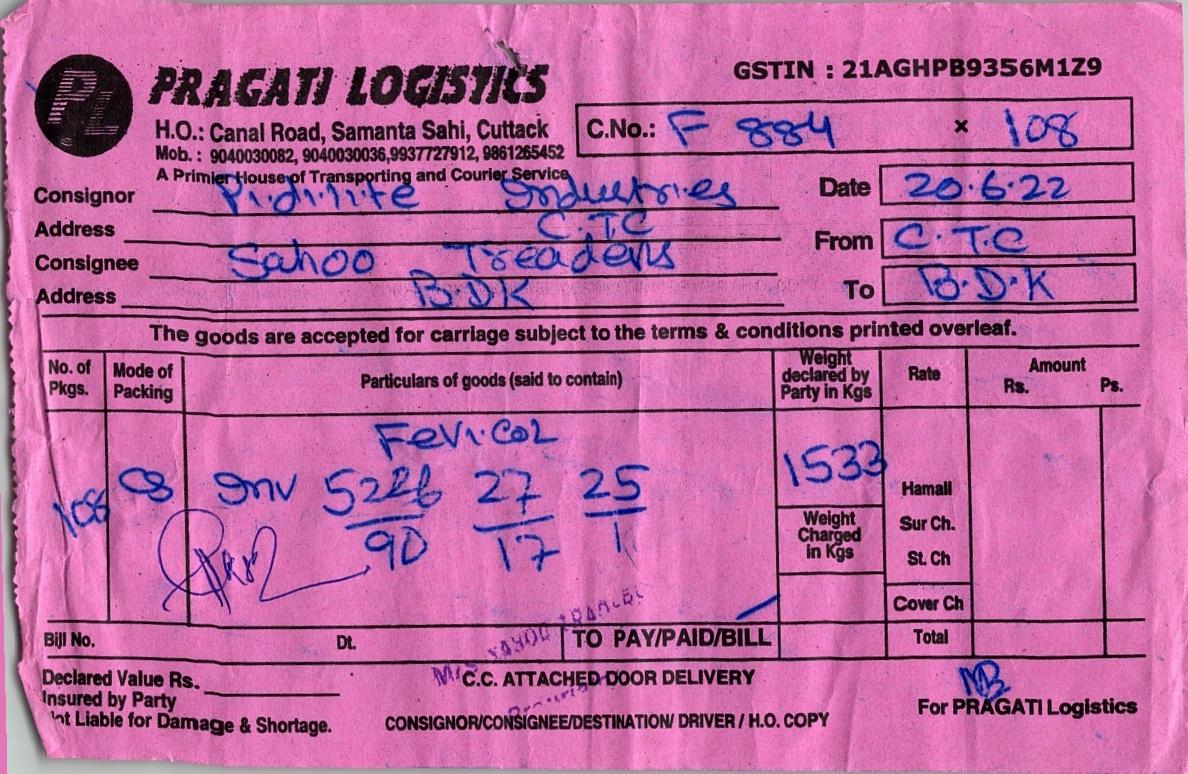 PL PRAGATI LOGISTICS
GSTIN : 21AGHPB9356M1Z9
H.O.: Canal Road, Samanta Sahi, Cuttack
Mob. : 9040030082, 9040030036,9937727912, 9861265452
A Primier House of Transporting and Courier Service
C.No.: F 884 x 108
Consignor Pidilite Industries
Date 20.6.22
Address C.TC
From C.T.C
Consignee Sahoo Treaders
Address B.D.K
To B.D.K
The goods are accepted for carriage subject to the terms & conditions printed overleaf.
No. of Pkgs. Mode of Packing Particulars of goods (said to contain) Weight declared by Party in Kgs Rate Amount Rs. Ps.
Fevicol
108 CB Inv 5226 27 25 1533
90 17 1
Weight Charged in Kgs
Hamali
Sur Ch.
St. Ch
Cover Ch
Bill No. Dt. TO PAY/PAID/BILL Total
M/S SAHOO TRADERS
Declared Value Rs.
C.C. ATTACHED DOOR DELIVERY
Insured by Party
MB
For PRAGATI Logistics
Not Liable for Damage & Shortage.
CONSIGNOR/CONSIGNEE/DESTINATION/ DRIVER / H.O. COPY